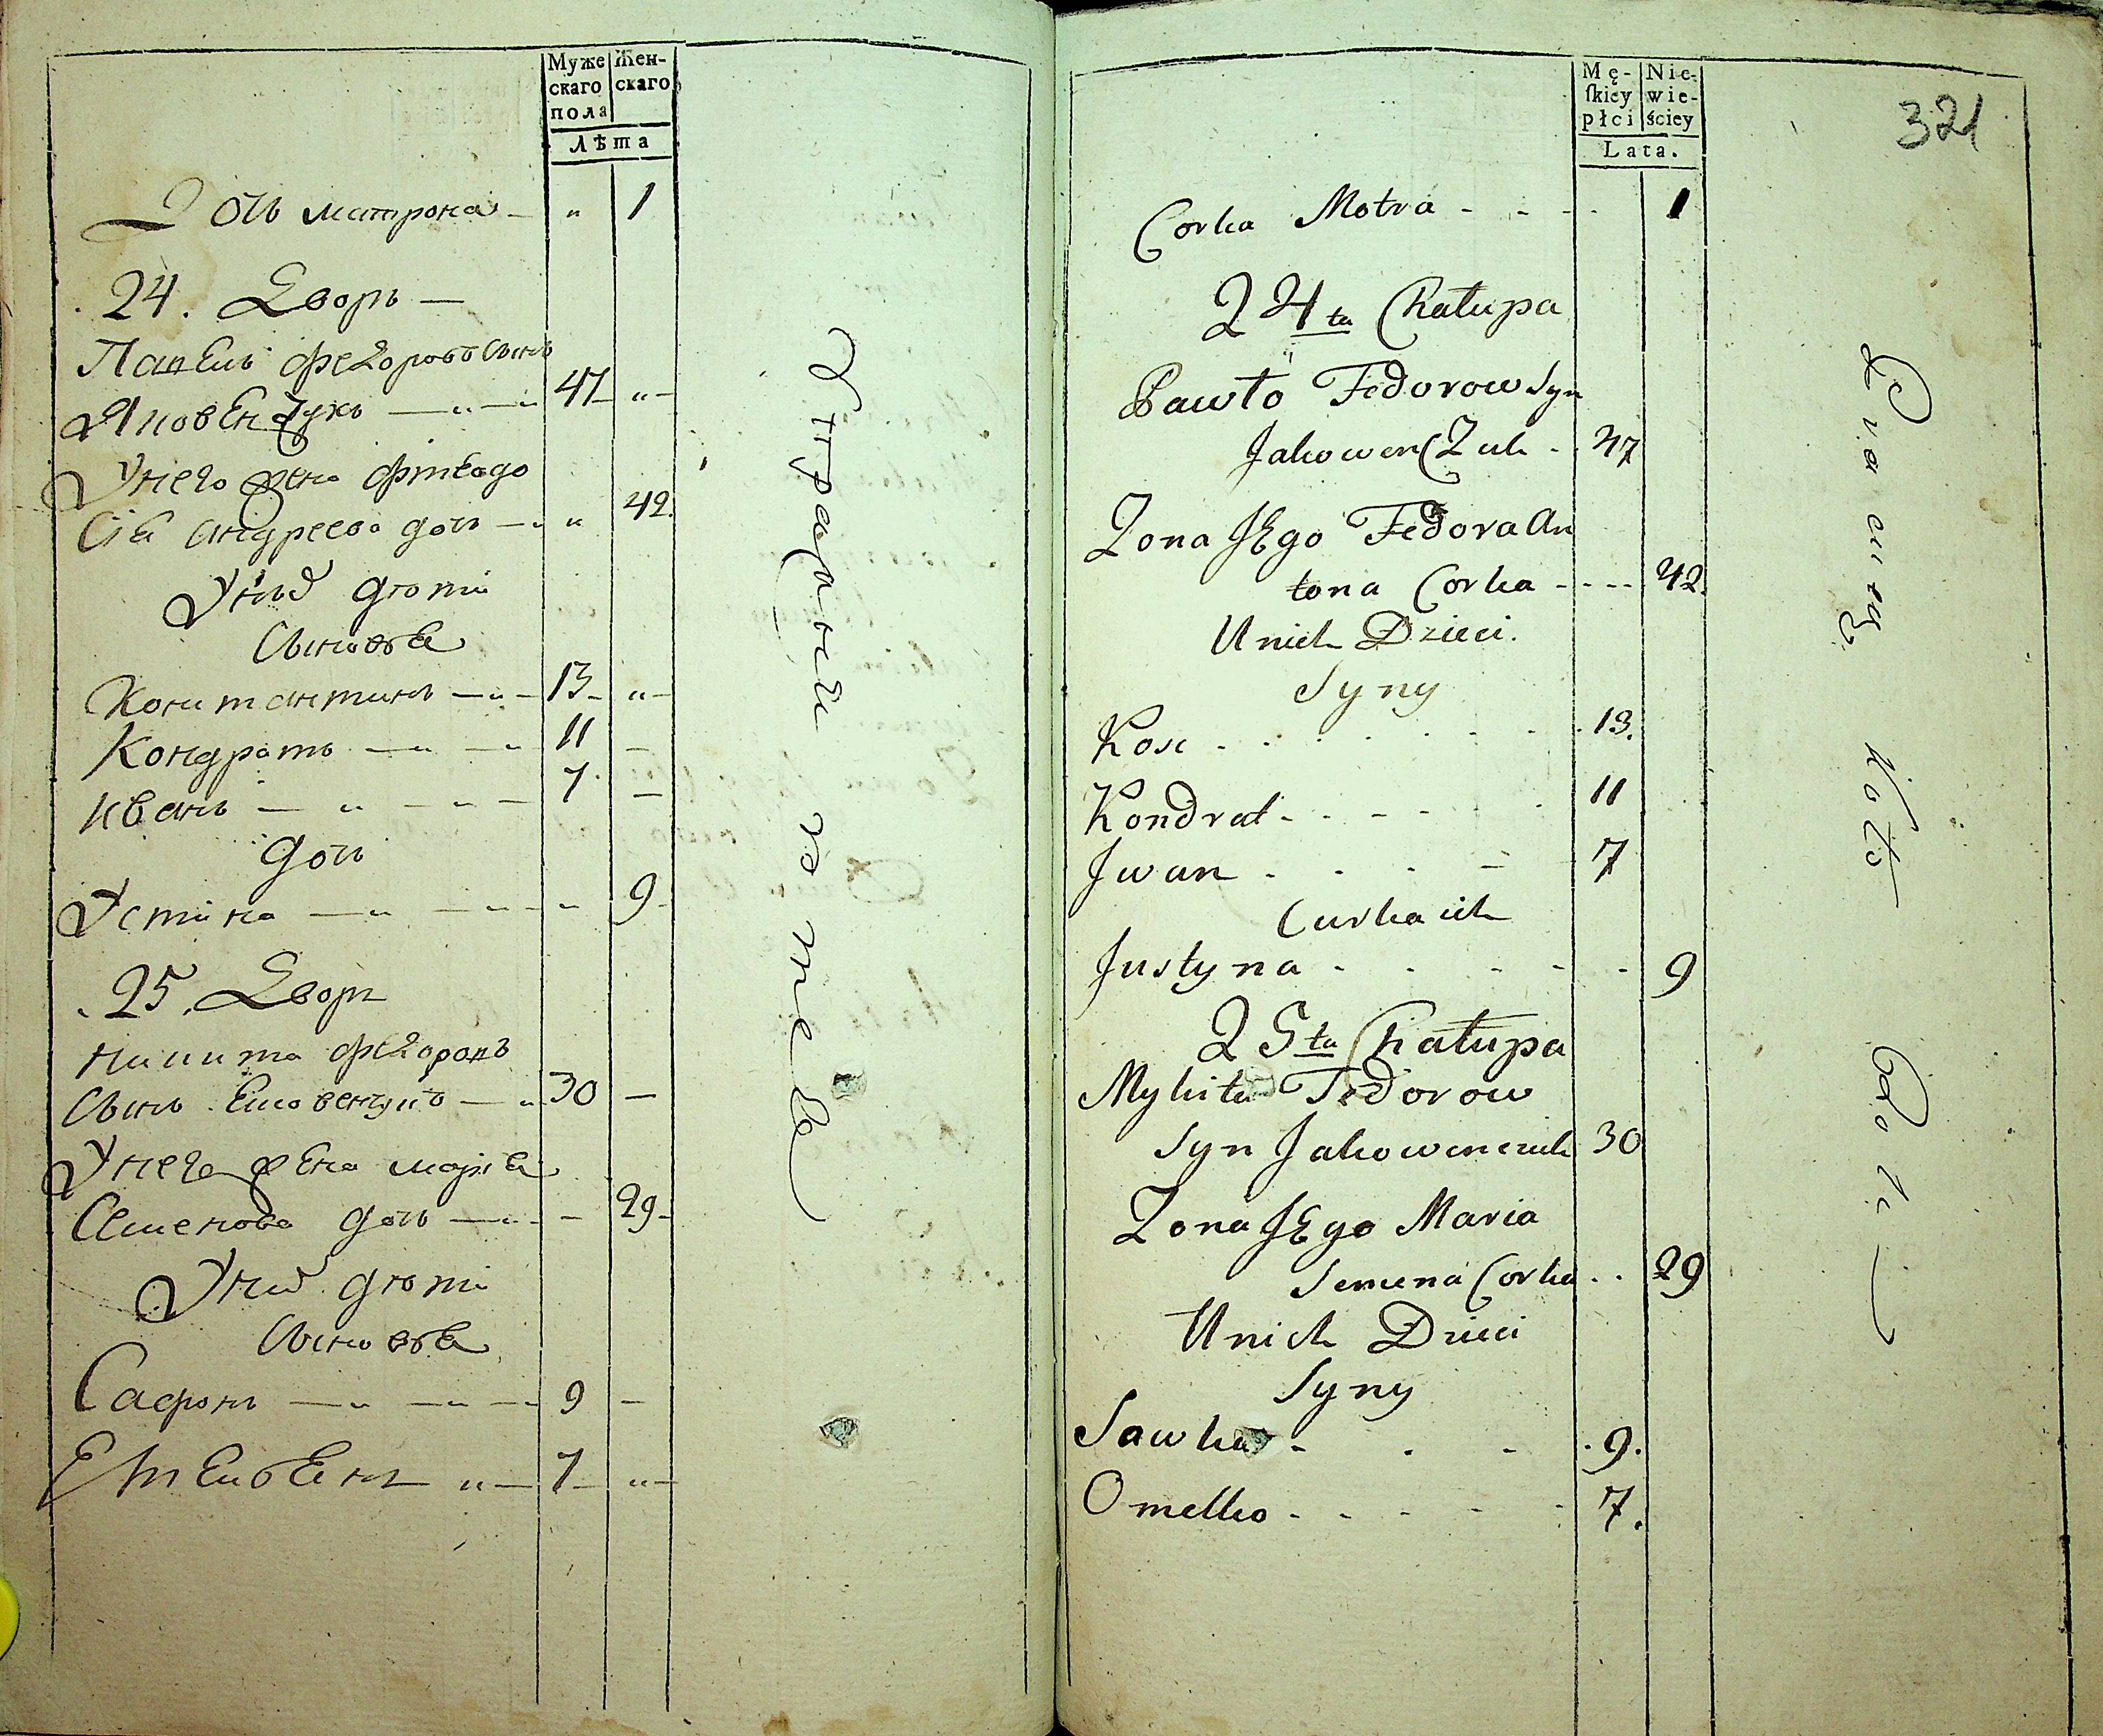 Муже Жен-
скаго скаго
пола
Лѣта
Дочь матрона " 1
24. Дворъ
Павелъ федоровъ сынъ
Яковенчукъ 47 "
Унего жена фтеодо
Сія андреева дочь " 42.
Унихъ дѣти
Сыновья
Константинъ 13 "
Кондратъ 11
иванъ 7
дочь
Устина " 9
25. Дворъ
никита федоровъ
Сынъ Яковенчукъ 30
Унего жена марья
Семенова дочь 29
Унихъ дѣти
Сыновья
Сафонъ 9
Емельянъ " 7 "
Mę- Nie-
ſkiey wie-
płci ściey
Lata.
321
Corka Motra 1
24ta Chałupa
Pawło Fedorow Syn
Jakowenczuk 47
Zona JEgo Fedora An
tona Corka 42.
Unich Dzieci.
Syny
Kosc 13.
Kondrat 11
Jwan 7
Curka ich
Justyna 9
25ta Chałupa
Mykita Fedorow
Syn Jakowenczuk 30
Zona JEgo Maria
Semena Corka 29
Unich Dzieci
Syny
Sawka 9.
Omelko 7.